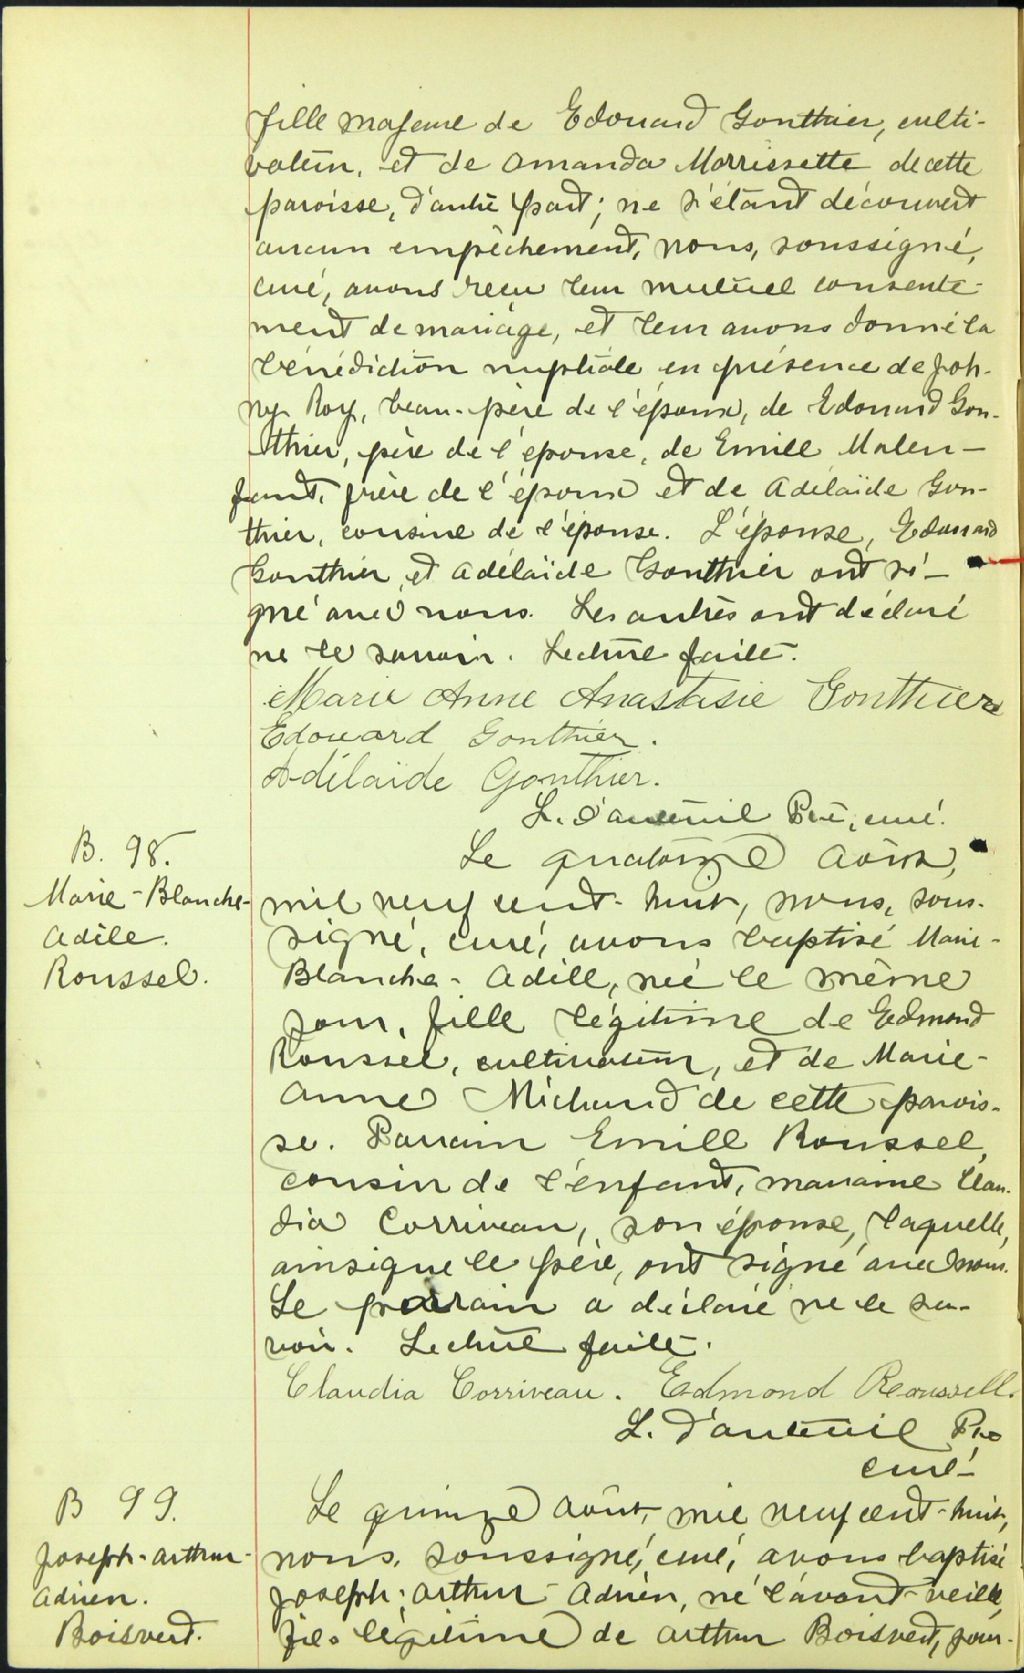 fille majeure de Edouard Gonthier, culti-
vateur, et de Amanda Morrissette de cette
paroisse, d'autre part; ne s'étant découvert
aucun empêchement, nous, soussigné,
curé, avons reçu leur mutuel consente-
ment de mariage, et leur avons donné la
bénédiction nuptiale en présence de Joh-
ny Roy, beau-père de l'époux, de Edouard Gon-
thier, père de l'épouse, de Emile Malen-
fant, frère de l'époux et de Adélaïde Gon-
thier, cousine de l'épouse. L'épouse, Edouard
Gonthier et Adélaïde Gonthier ont si-
gné avec nous. Les autres ont déclaré
ne le savoir. Lecture faite.
Marie Anne Anastasie Gonthier
Edouard Gonthier.
Adélaïde Gonthier.
L. D'auteuil Ptre, curé.
B. 98.
Marie-Blanche-
Adile.
Roussel.
Le quatorze Août,
mil neuf cent-huit, nous, sous-
signé, curé, avons baptisé Marie-
Blanche-Adill, née le même
jour, fille légitime de Edmond
Roussel, cultivateur, et de Marie-
Anne Michaud de cette parois-
se. Parrain Emill Roussel,
cousin de l'enfant, marraine Clau-
dia Corriveau, son épouse, laquelle,
ainsi que le père, ont signé avec nous.
Le parrain a déclaré ne le sa-
voir. Lecture faite.
Claudia Corriveau. Edmond Roussell.
L. D'auteuil Ptre
curé-
B 99.
Joseph-Arthur-
Adrien.
Boisvert.
Le quinze Août, mil neuf cent-huit,
nous, soussigné, curé, avons baptisé
Joseph-Arthur-Adrien, né l'avant-veille,
fils légitime de Arthur Boisvert, jour-